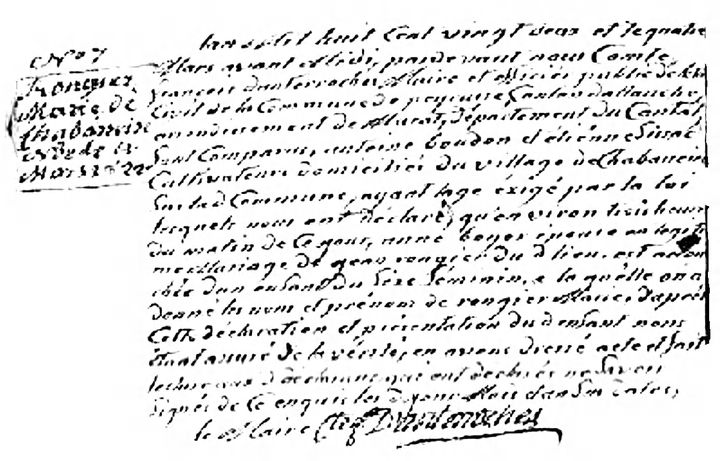 N° 7
Rongier
Marie de
Chabanon
Née le 4
Mars 1822
L'an mil huit Cent vingt deux et le quatre
Mars avant Midi, pardevant nous Comte
françois Danterroches Maire et officier public de l'état
Civil de la Commune de peyrusse Canton d'allanche
arrondissement de Murat, département du Cantal,
Sont Comparus antoine boudon et étienne
Cultivateurs domiciliés du village de Chabanon
Susdite Commune, ayant l'age éxigé par la loi
lesquels nous ont déclaré, qu'environ trois heures
du matin de Ce jour, anne boyer épouse en légiti
me Mariage de jean rongier du d. lieu est accou
chée d'un enfant du Sexe féminin, a la quelle on a
donné les nom et prénom de rongier Marie, d'après
Cette déclaration et présentation du d. enfant nous
étant assuré de la vérité, en avons dressé acte et fait
lecture aux d. déclarants qui ont déclaré ne Savoir
Signer de Ce enquis les d. jour Mois d'an Sus dates,
le Maire Danterroches